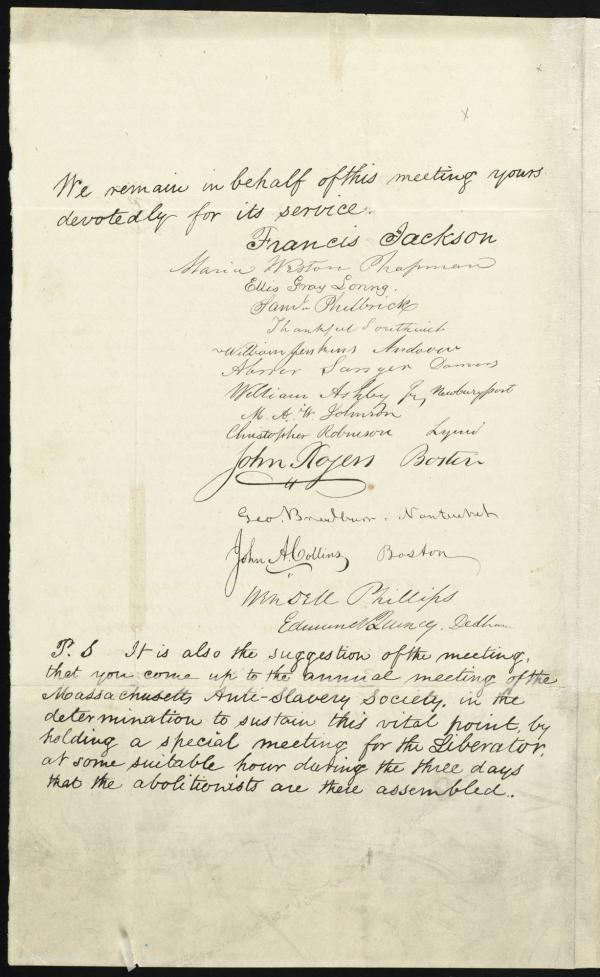 We remain in behalf of this meeting yours
devotedly for its service.
Francis Jackson
Maria Weston Chapman
Ellis Gray Loring.
Saml. Philbrick
Thankful Southwick
William Jenkins Andover
Abner Sanger Danvers
William Ashby Jr, Newburyport
M. A. W. Johnson
Christopher Robinson Lynn
John Rogers Boston
Geo. Bradburn. Nantucket
John A. Collins Boston
Wendell Phillips
Edmund Quincy. Dedham
P. S It is also the suggestion of the meeting,
that you come up to the annual meeting of the
Massachusetts Anti-Slavery Society, in the
determination to sustain this vital point, by
holding a special meeting for the Liberator,
at some suitable hour during the three days
that the abolitionists are there assembled..